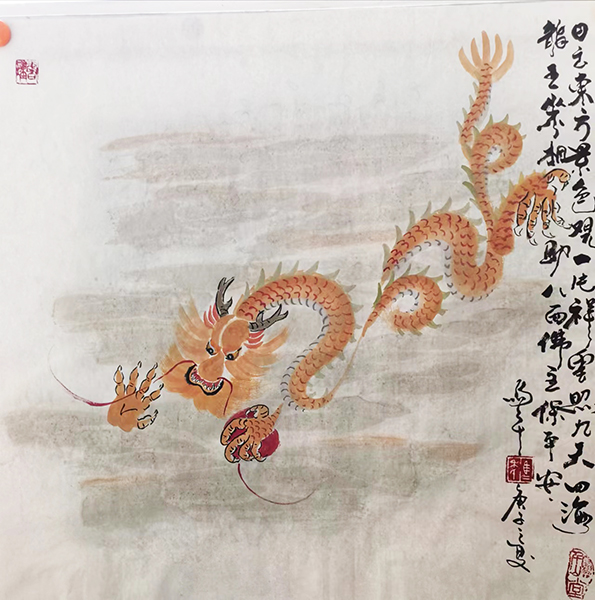 日出東方景色观一片祥雲照九天四海
龍王相助八面佛主保平安
庚子之夏